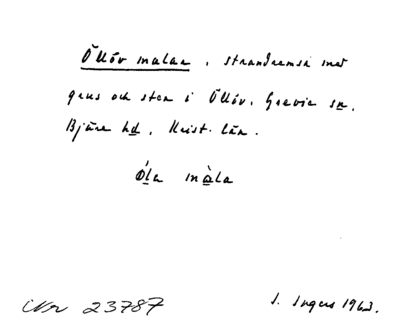 Öllöv malar, strandremsa med
grus och sten i Öllöv, Grevie sn,
Bjäre hd, Krist. län.
Óla màla
Nr 23787
I. Ingers 1963.